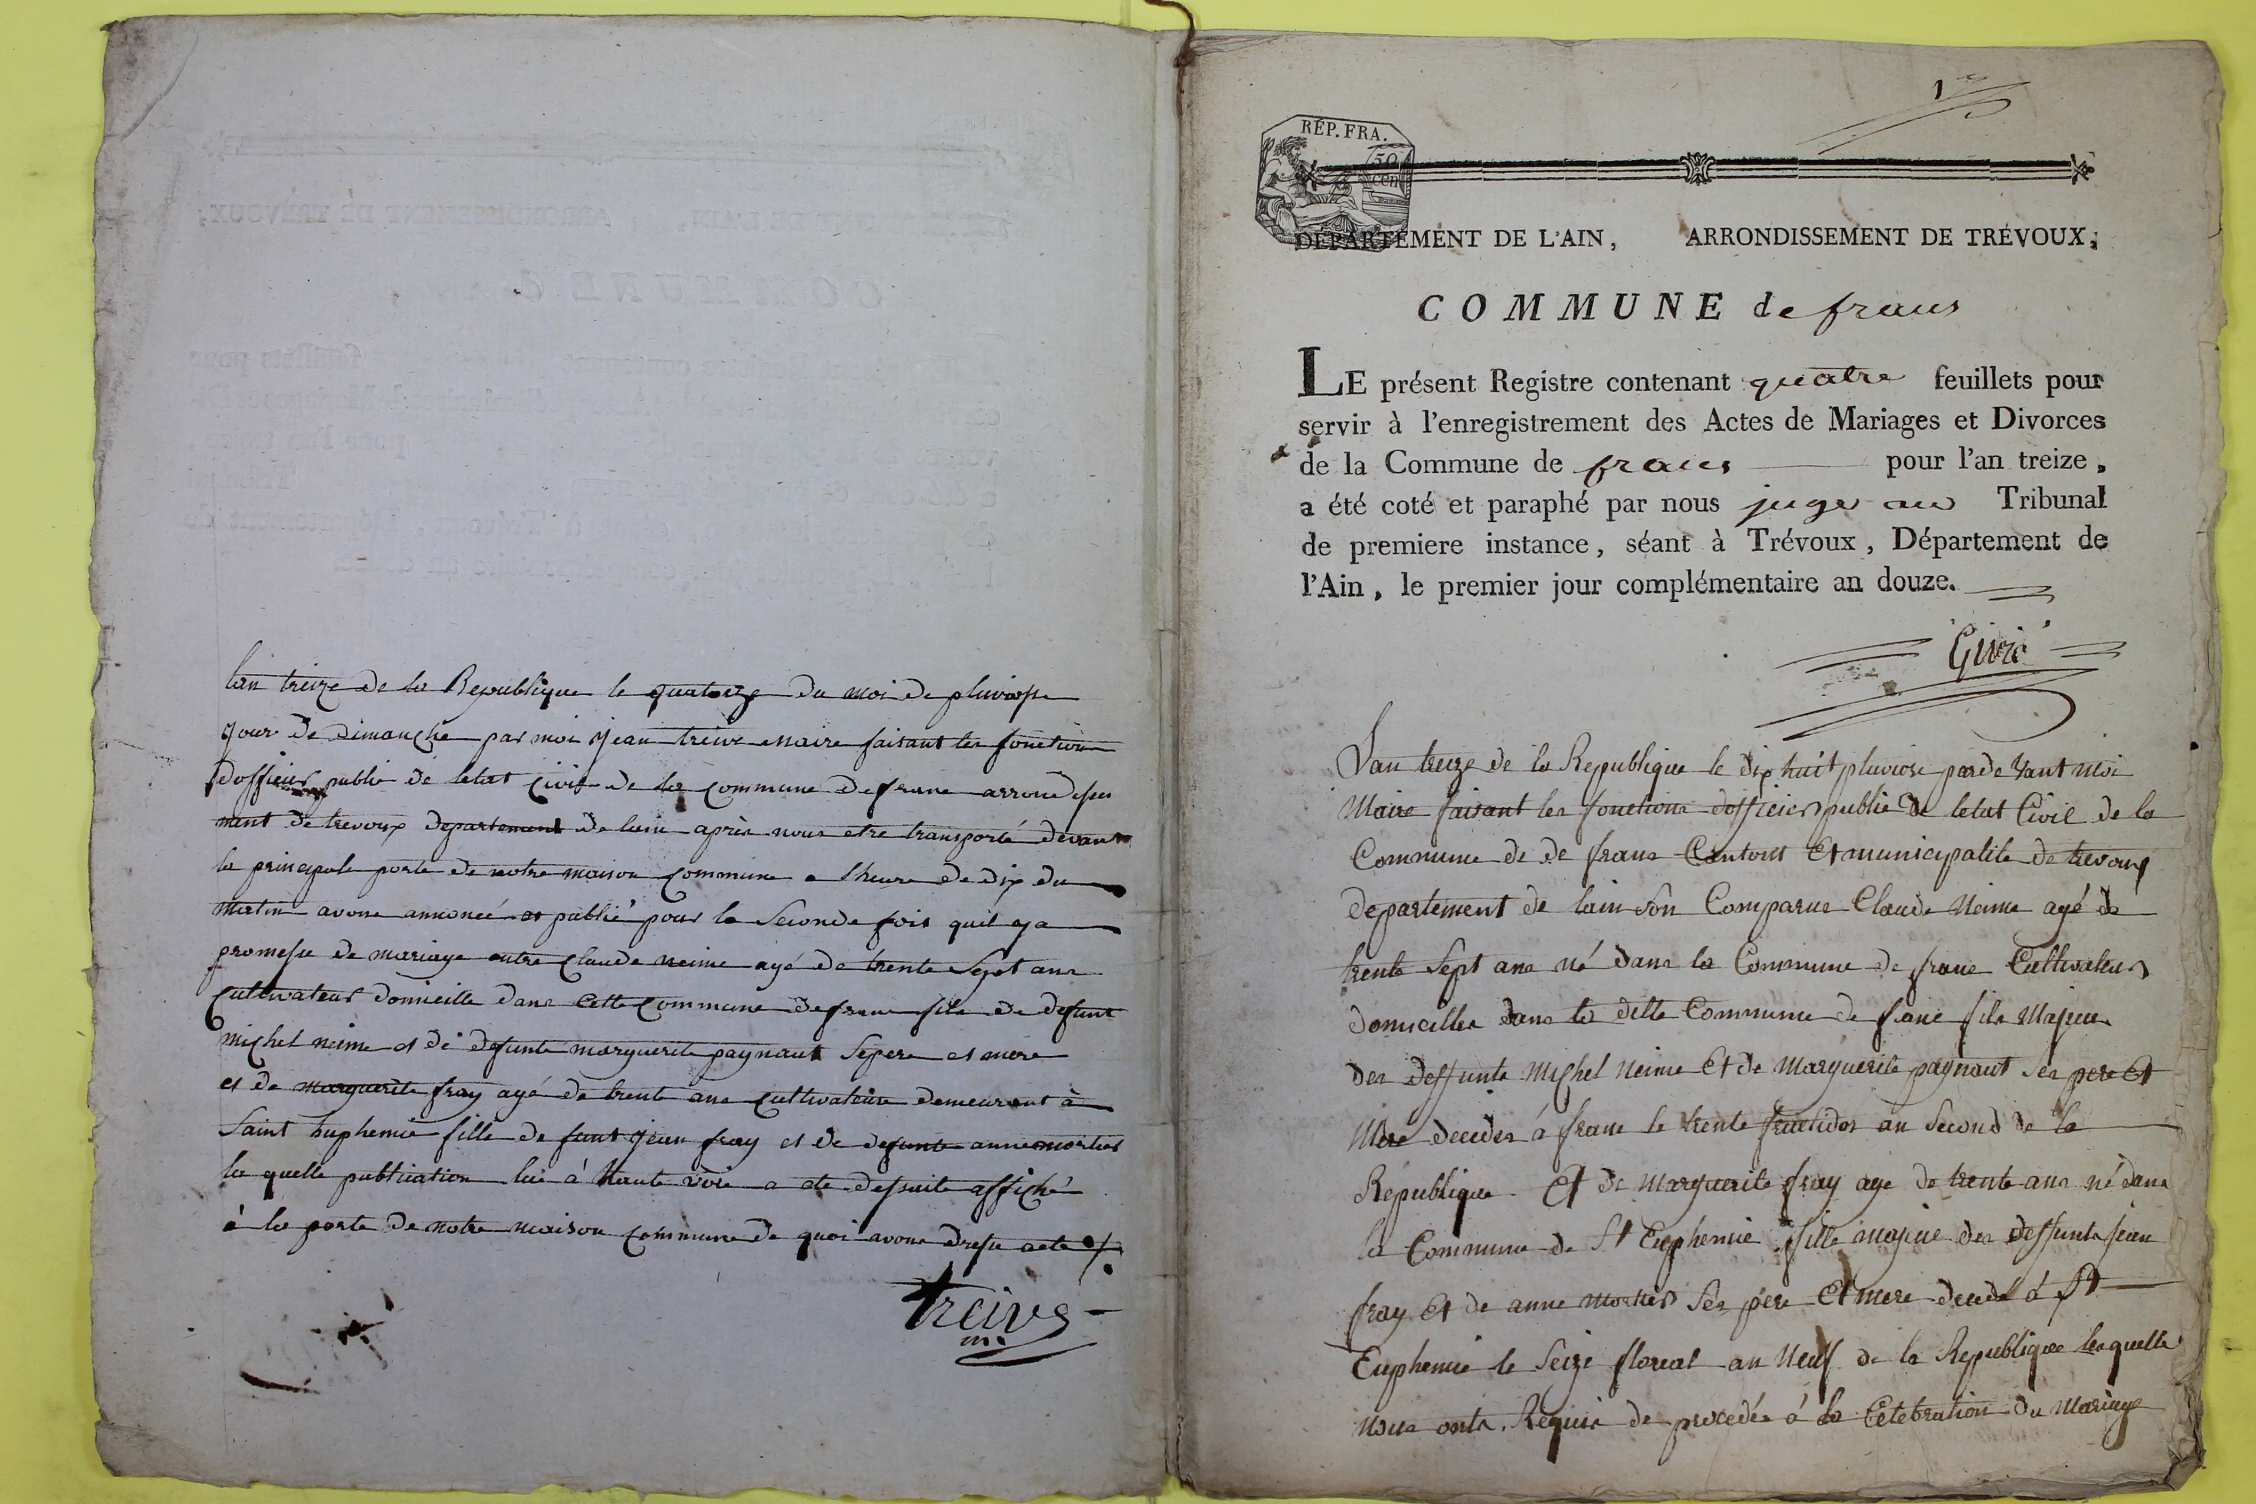 lan treize de la Republique le quatorze du moi de pluviose
jour de dimanche par moi jean treive maire faisant les fonction
dofficier public de letat civil de la commune de frane arrondisse
mant de trevoux departement de lain après nous etre transporté devant
la principale porte de notre maison commune a lheure de dix du
matin avons annoncé et publié pour la seconde fois quil ya
promesse de mariage entre claude neime agé de trente sept ans
cultivateur domicille dans cette commune de frane fils de defunt
michel neime et de defunte marguerite pagnaut se pere et mere
et de marguerite fray agé de trente ans cultivateure demeurant à
saint huphemie fille de jean fray et de defunte anne mortier
la quelle publication lue à haute voix a ete desuite affiché
à la porte de notre maison commune de quoi avons dresse acte ./.
treive
m.
1er
RÉP. FRA.
50
cen
DÉPARTEMENT DE L'AIN, ARRONDISSEMENT DE TRÉVOUX,
COMMUNE de frans
LE présent Registre contenant quatre feuillets pour
servir à l'enregistrement des Actes de Mariages et Divorces
de la Commune de frans pour l'an treize,
a été coté et paraphé par nous juge au Tribunal
de premiere instance, séant à Trévoux, Département de
l'Ain, le premier jour complémentaire an douze.
Givré
Lan treize de la Republique le dix huit pluviose par de vant moi
Maire faisant les fonctions dofficier public de letat Civil de la
Commune de de frans Cantons Et municipalite de trevoux
departement de lain son Comparus Claude Neime agé de
trente sept ans né dans la Commune de frane Cultivateur
domicilles dans la ditte Commune de frane fils Majeur
des deffunts Michel Neime Et de Marguerite pagnaut ses pere Et
Mere decedes á frane le trente fructidor an second de la
Republique Et de Marguerite fray age de trente ans né dans
la Commune de St Euphemie fille majeure des deffunts jean
fray Et de anne Mortier ses pere Et mere decedé á St
Euphemie le seize floreal an Neuf de la Republique lesquelle
nous onts Requis de procedée á la Celebration du Mariage